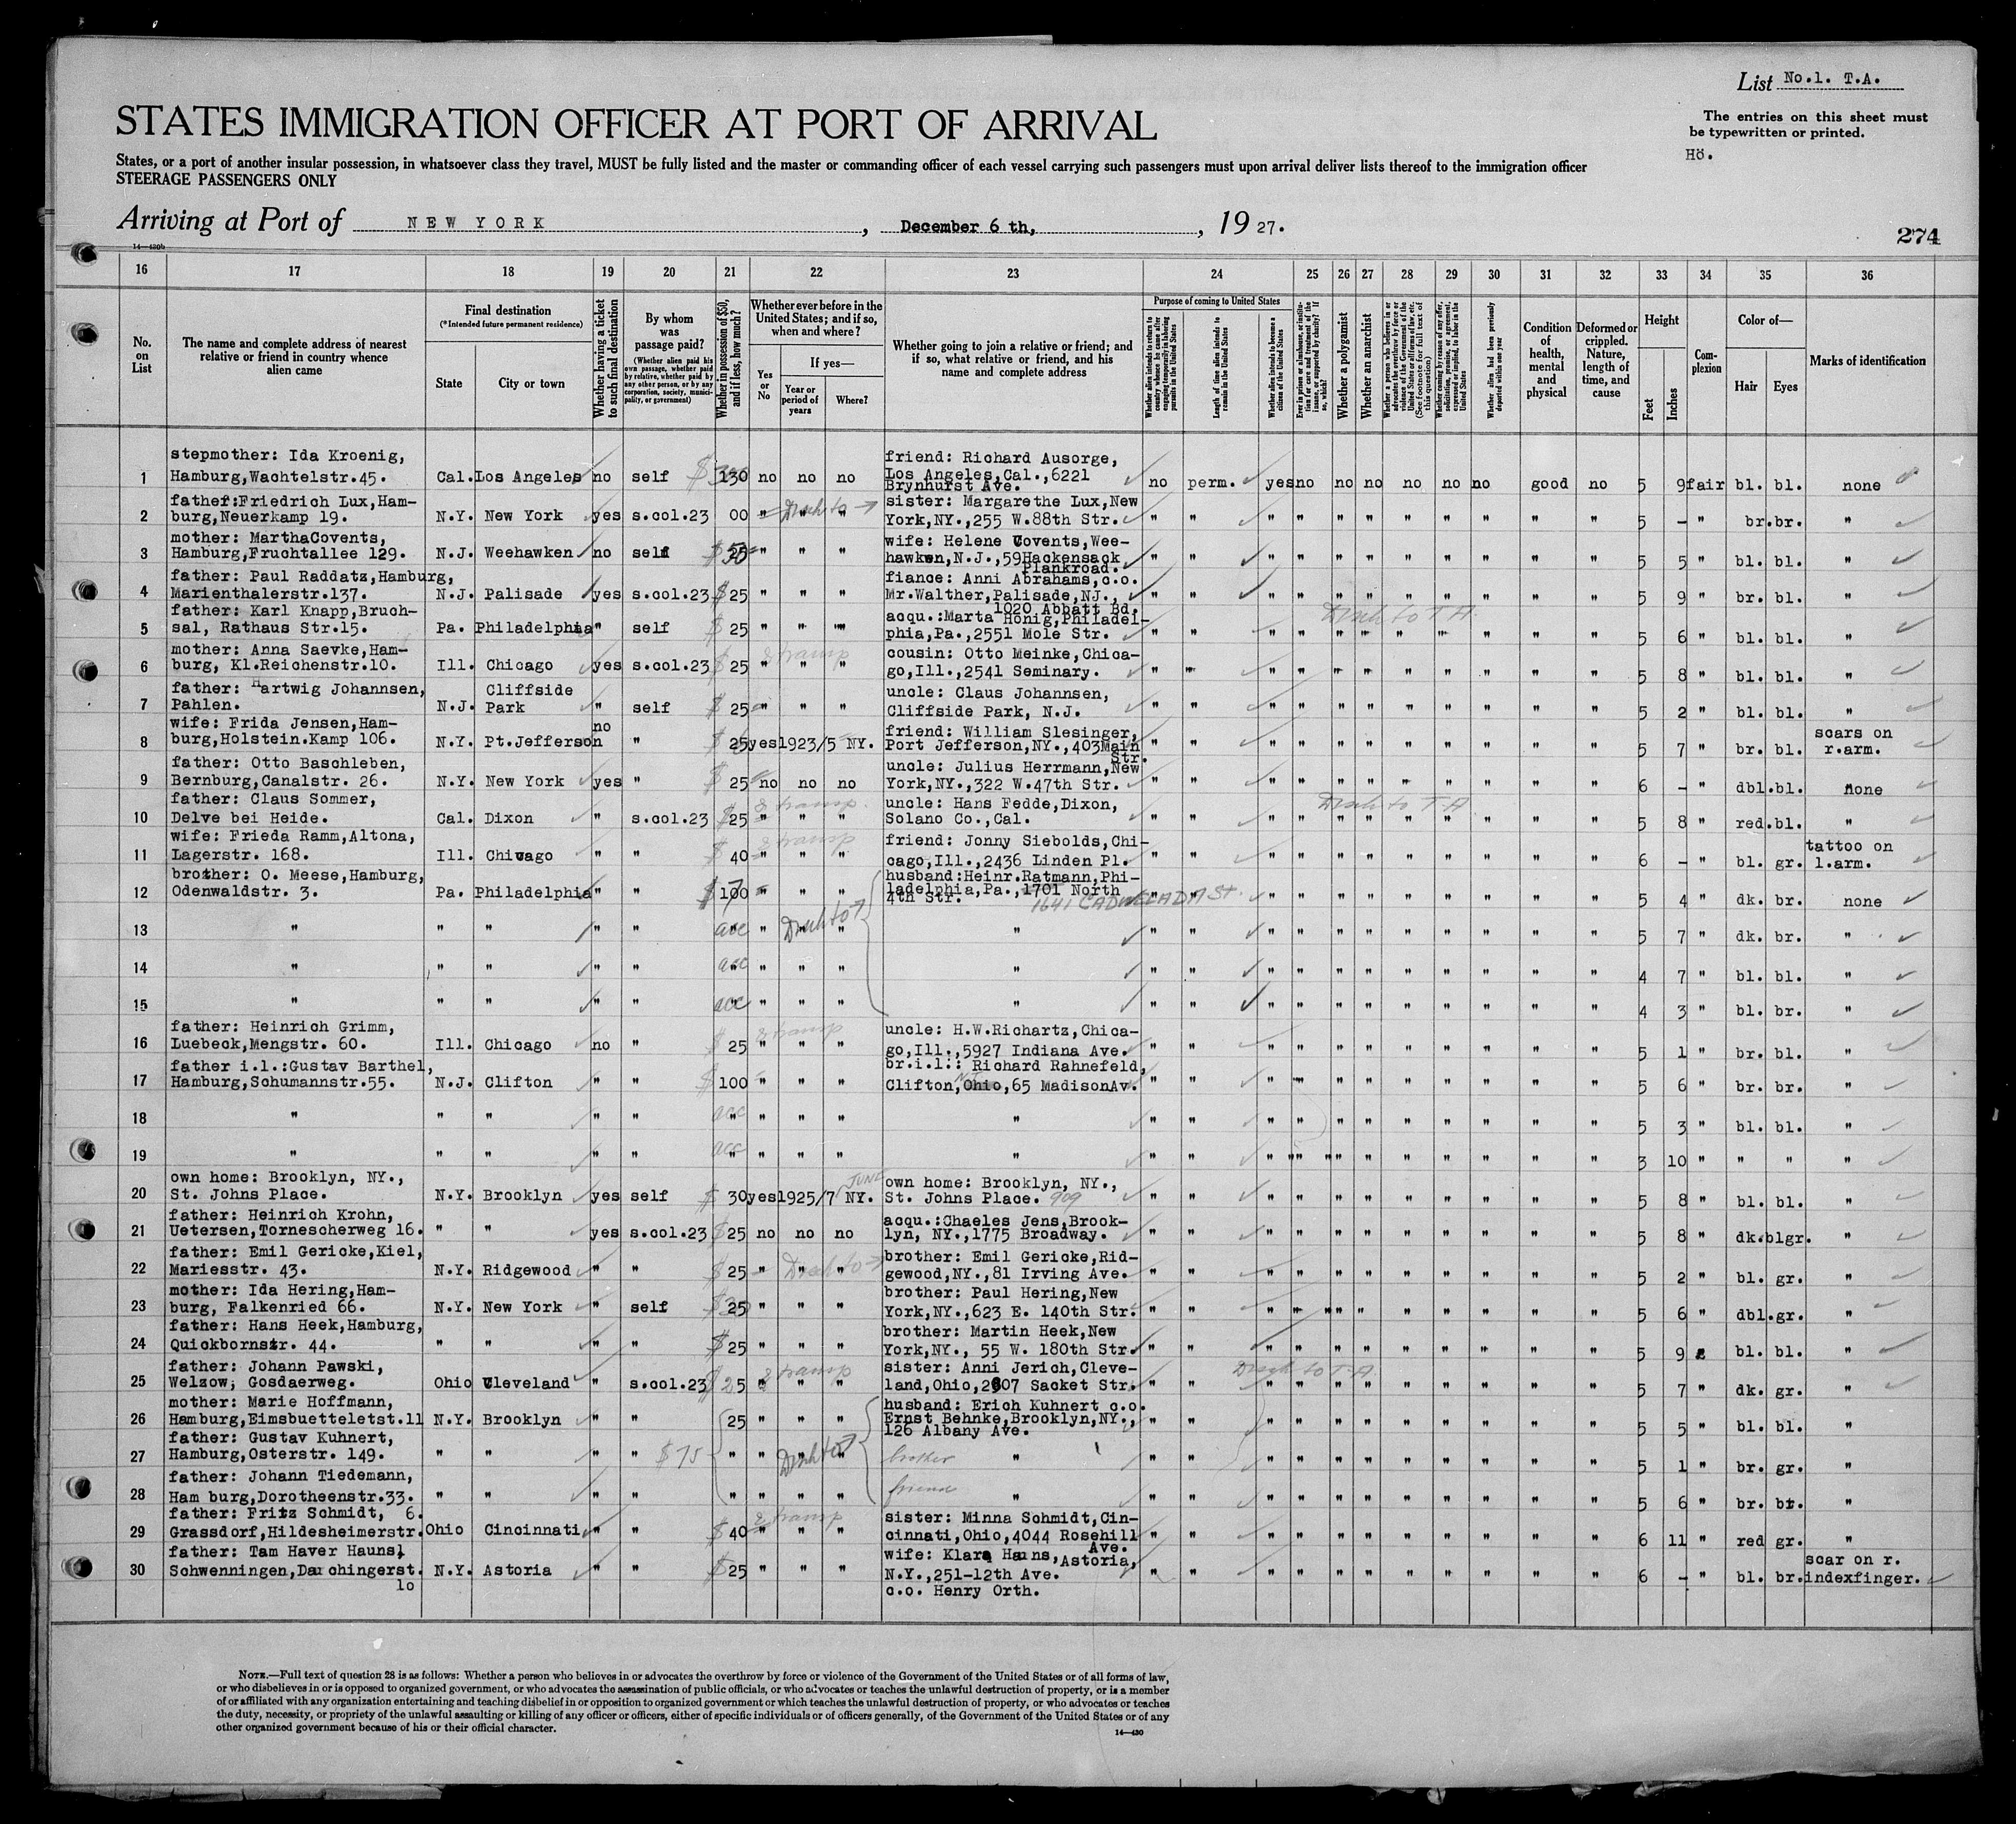 List No.1. T.A.
STATES IMMIGRATION OFFICER AT PORT OF ARRIVAL
The entries on this sheet must
be typewritten or printed.
Hö.
States, or a port of another insular possession, in whatsoever class they travel, MUST be fully listed and the master or commanding officer of each vessel carrying such passengers must upon arrival deliver lists thereof to the immigration officer
STEERAGE PASSENGERS ONLY
Arriving at Port of NEW YORK, December 6 th, 19 27.
274
16 17 18 19 20 21 22 23 24 25 26 27 28 29 30 31 32 33 34 35 36
No. on List
The name and complete address of nearest relative or friend in country whence alien came
Final destination
(*Intended future permanent residence)
State
City or town
Whether having a ticket to such final destination
By whom was passage paid?
(Whether alien paid his own passage, whether paid by relative, whether paid by any other person, or by any corporation, society, municipality, or government)
Whether in possession of $50, and if less, how much?
Whether ever before in the United States; and if so, when and where?
Yes or No
If yes—
Year or period of years
Where?
Whether going to join a relative or friend; and if so, what relative or friend, and his name and complete address
Purpose of coming to United States
Whether alien intends to return to country whence he came after engaging temporarily in laboring pursuits in the United States
Length of time alien intends to remain in the United States
Whether alien intends to become a citizen of the United States
Ever in prison or almshouse, or institution for care and treatment of the insane, or supported by charity? If so, which?
Whether a polygamist
Whether an anarchist
Whether a person who believes in or advocates the overthrow by force or violence of the Government of the United States or all forms of law, etc. (See footnote for full text of this question)
Whether coming by reason of any offer, solicitation, promise, or agreement, expressed or implied, to labor in the United States
Whether alien had been previously deported within one year
Condition of health, mental and physical
Deformed or crippled. Nature, length of time, and cause
Height
Feet
Inches
Complexion
Color of—
Hair
Eyes
Marks of identification
1 stepmother: Ida Kroenig, Hamburg,Wachtelstr.45. Cal. Los Angeles no self 130 no no no friend: Richard Ausorge, Los Angeles,Cal.,6221 Brynhurst Ave. no perm. yes no no no no no no good no 5 9 fair bl. bl. none
2 father:Friedrich Lux,Ham-burg,Neuerkamp 19. N.Y. New York yes s.col.23 00 " " " sister: Margarethe Lux,New York,NY.,255 W.88th Str. " " " " " " " " " " " 5 - " br. br. "
3 mother: MarthaCovents, Hamburg,Fruchtallee 129. N.J. Weehawken no self " " " wife: Helene Covents,Wee-hawken,N.J.,59Hackensack Plankroad. " " " " " " " " " " " 5 5 " bl. bl. "
4 father: Paul Raddatz,Hamburg, Marienthalerstr.137. N.J. Palisade yes s.col.23 $25 " " " fiance: Anni Abrahams,c.o. Mr.Walther,Palisade,NJ., 1020 Abbatt Bd. " " " " " " " " " " " 5 9 " br. bl. "
5 father: Karl Knapp,Bruch-sal, Rathaus Str.15. Pa. Philadelphia " self $ 25 " " " acqu.:Marta Hönig,Philadel-phia,Pa.,2551 Mole Str. " " " " " " " " " " " 5 6 " bl. bl. "
6 mother: Anna Saevke,Ham-burg, Kl.Reichenstr.10. Ill. Chicago yes s.col.23 $25 " " " cousin: Otto Meinke,Chica-go,Ill.,2541 Seminary. " " " " " " " " " " " 5 8 " bl. bl. "
7 father: Hartwig Johannsen, Pahlen. N.J. Cliffside Park " self $ 25 " " " uncle: Claus Johannsen, Cliffside Park, N.J. " " " " " " " " " " " 5 2 " bl. bl. "
8 wife: Frida Jensen,Ham-burg,Holstein.Kamp 106. N.Y. Pt.Jefferson no " $ 25 yes 1923/5 NY. friend: William Slesinger, Port Jefferson,NY.,403Main Str. " " " " " " " " " " " 5 7 " br. bl. scars on r.arm.
9 father: Otto Baschleben, Bernburg,Canalstr. 26. N.Y. New York yes " $ 25 no no no uncle: Julius Herrmann,New York,NY.,322 W.47th Str. " " " " " " " " " " " 6 - " dbl. bl. none
10 father: Claus Sommer, Delve bei Heide. Cal. Dixon " s.col.23 $25 " " " uncle: Hans Fedde,Dixon, Solano Co.,Cal. " " " " " " " " " " " 5 8 " red. bl. "
11 wife: Frieda Ramm,Altona, Lagerstr. 168. Ill. Chicago " " $ 40 " " " friend: Jonny Siebolds,Chi-cago,Ill.,2436 Linden Pl. " " " " " " " " " " " 6 - " bl. gr. tattoo on l.arm.
12 brother: O. Meese,Hamburg, Odenwaldstr. 3. Pa. Philadelphia " " 100 " " " husband:Heinr.Ratmann,Phi-ladelphia,Pa.,1701 North 4th Str. 1641 CADWALADA St. " " " " " " " " " " " 5 4 " dk. br. none
13 " " " " " acc " " " " " " " " " " " " " " " " 5 7 " dk. br. "
14 " " " " " acc " " " " " " " " " " " " " " " " 4 7 " bl. bl. "
15 " " " " " acc " " " " " " " " " " " " " " " " 4 3 " bl. br. "
16 father: Heinrich Grimm, Luebeck,Mengstr. 60. Ill. Chicago no " $ 25 " " " uncle: H.W.Richartz,Chica-go,Ill.,5927 Indiana Ave. " " " " " " " " " " " 5 1 " br. bl. "
17 father i.l.:Gustav Barthel, Hamburg,Schumannstr.55. N.J. Clifton " " $ 100 " " " br.i.l.: Richard Rahnefeld, Clifton,Ohio,65 MadisonAv. NJ " " " " " " " " " " " 5 6 " br. br. "
18 " " " " " acc " " " " " " " " " " " " " " " " 5 3 " bl. bl. "
19 " " " " " acc " " " " " " " " " " " " " " " " 3 10 " " " "
20 own home: Brooklyn, NY., St. Johns Place. N.Y. Brooklyn yes self $ 30 yes 1925/7 JUNE NY. own home: Brooklyn, NY., St. Johns Place. 909 " " " " " " " " " " " 5 8 " bl. bl. "
21 father: Heinrich Krohn, Uetersen,Tornescherweg 16. " " yes s.col.23 $25 no no no acqu.:Chaeles Jens,Brook-lyn, NY.,1775 Broadway. " " " " " " " " " " " 5 8 " dk.blgr. "
22 father: Emil Gericke,Kiel, Mariesstr. 43. N.Y. Ridgewood " " $25 " " " brother: Emil Gericke,Rid-gewood,NY.,81 Irving Ave. " " " " " " " " " " " 5 2 " bl. gr. "
23 mother: Ida Hering,Ham-burg, Falkenried 66. N.Y. New York " self 25 " " " brother: Paul Hering,New York,NY.,623 E. 140th Str. " " " " " " " " " " " 5 6 " dbl.gr. "
24 father: Hans Heek,Hamburg, Quickbornstr. 44. " " " " $25 " " " brother: Martin Heek,New York,NY., 55 W. 180th Str. " " " " " " " " " " " 5 9 bl. bl. "
25 father: Johann Pawski, Welzow, Gosdaerweg. Ohio Cleveland " s.col.23 $25 " " " sister: Anni Jerich,Cleve-land,Ohio,2607 Sacket Str. " " " " " " " " " " " 5 7 " dk. gr. "
26 mother: Marie Hoffmann, Hamburg,Eimsbuetteletst.11 N.Y. Brooklyn " " 25 " " " husband: Erich Kuhnert c.o. Ernst Behnke,Brooklyn,NY., 126 Albany Ave. " " " " " " " " " " " 5 5 " bl. bl. "
27 father: Gustav Kuhnert, Hamburg,Osterstr. 149. " " " " $75 " " " " brother " " " " " " " " " " " " 5 1 " br. gr. "
28 father: Johann Tiedemann, Ham burg,Dorotheenstr.33. " " " " " " " " friend " " " " " " " " " " " " 5 6 " br. br. "
29 father: Fritz Schmidt, 6. Grassdorf,Hildesheimerstr. Ohio Cincinnati " " $ 40 " " " sister: Minna Schmidt,Cin-cinnati,Ohio,4044 Rosehill Ave. " " " " " " " " " " " 6 11 " red gr. "
30 father: Tam Haver Hauns, Schwenningen,Dauchingerst. 10 N.Y. Astoria " " $25 " " " wife: Klara Hauns,Astoria, N.Y.,251-12th Ave. c.o. Henry Orth. " " " " " " " " " " " 6 - " bl. br. scar on r. indexfinger.
NOTE.—Full text of question 28 is as follows: Whether a person who believes in or advocates the overthrow by force or violence of the Government of the United States or of all forms of law,
or who disbelieves in or is opposed to organized government, or who advocates the assassination of public officials, or who advocates or teaches the unlawful destruction of property, or is a member
of or affiliated with any organization entertaining and teaching disbelief in or opposition to organized government or which teaches the unlawful destruction of property, or who advocates or teaches
the duty, necessity, or propriety of the unlawful assaulting or killing of any officer or officers, either of specific individuals or of officers generally, of the Government of the United States or of any
other organized government because of his or their official character.
14—430